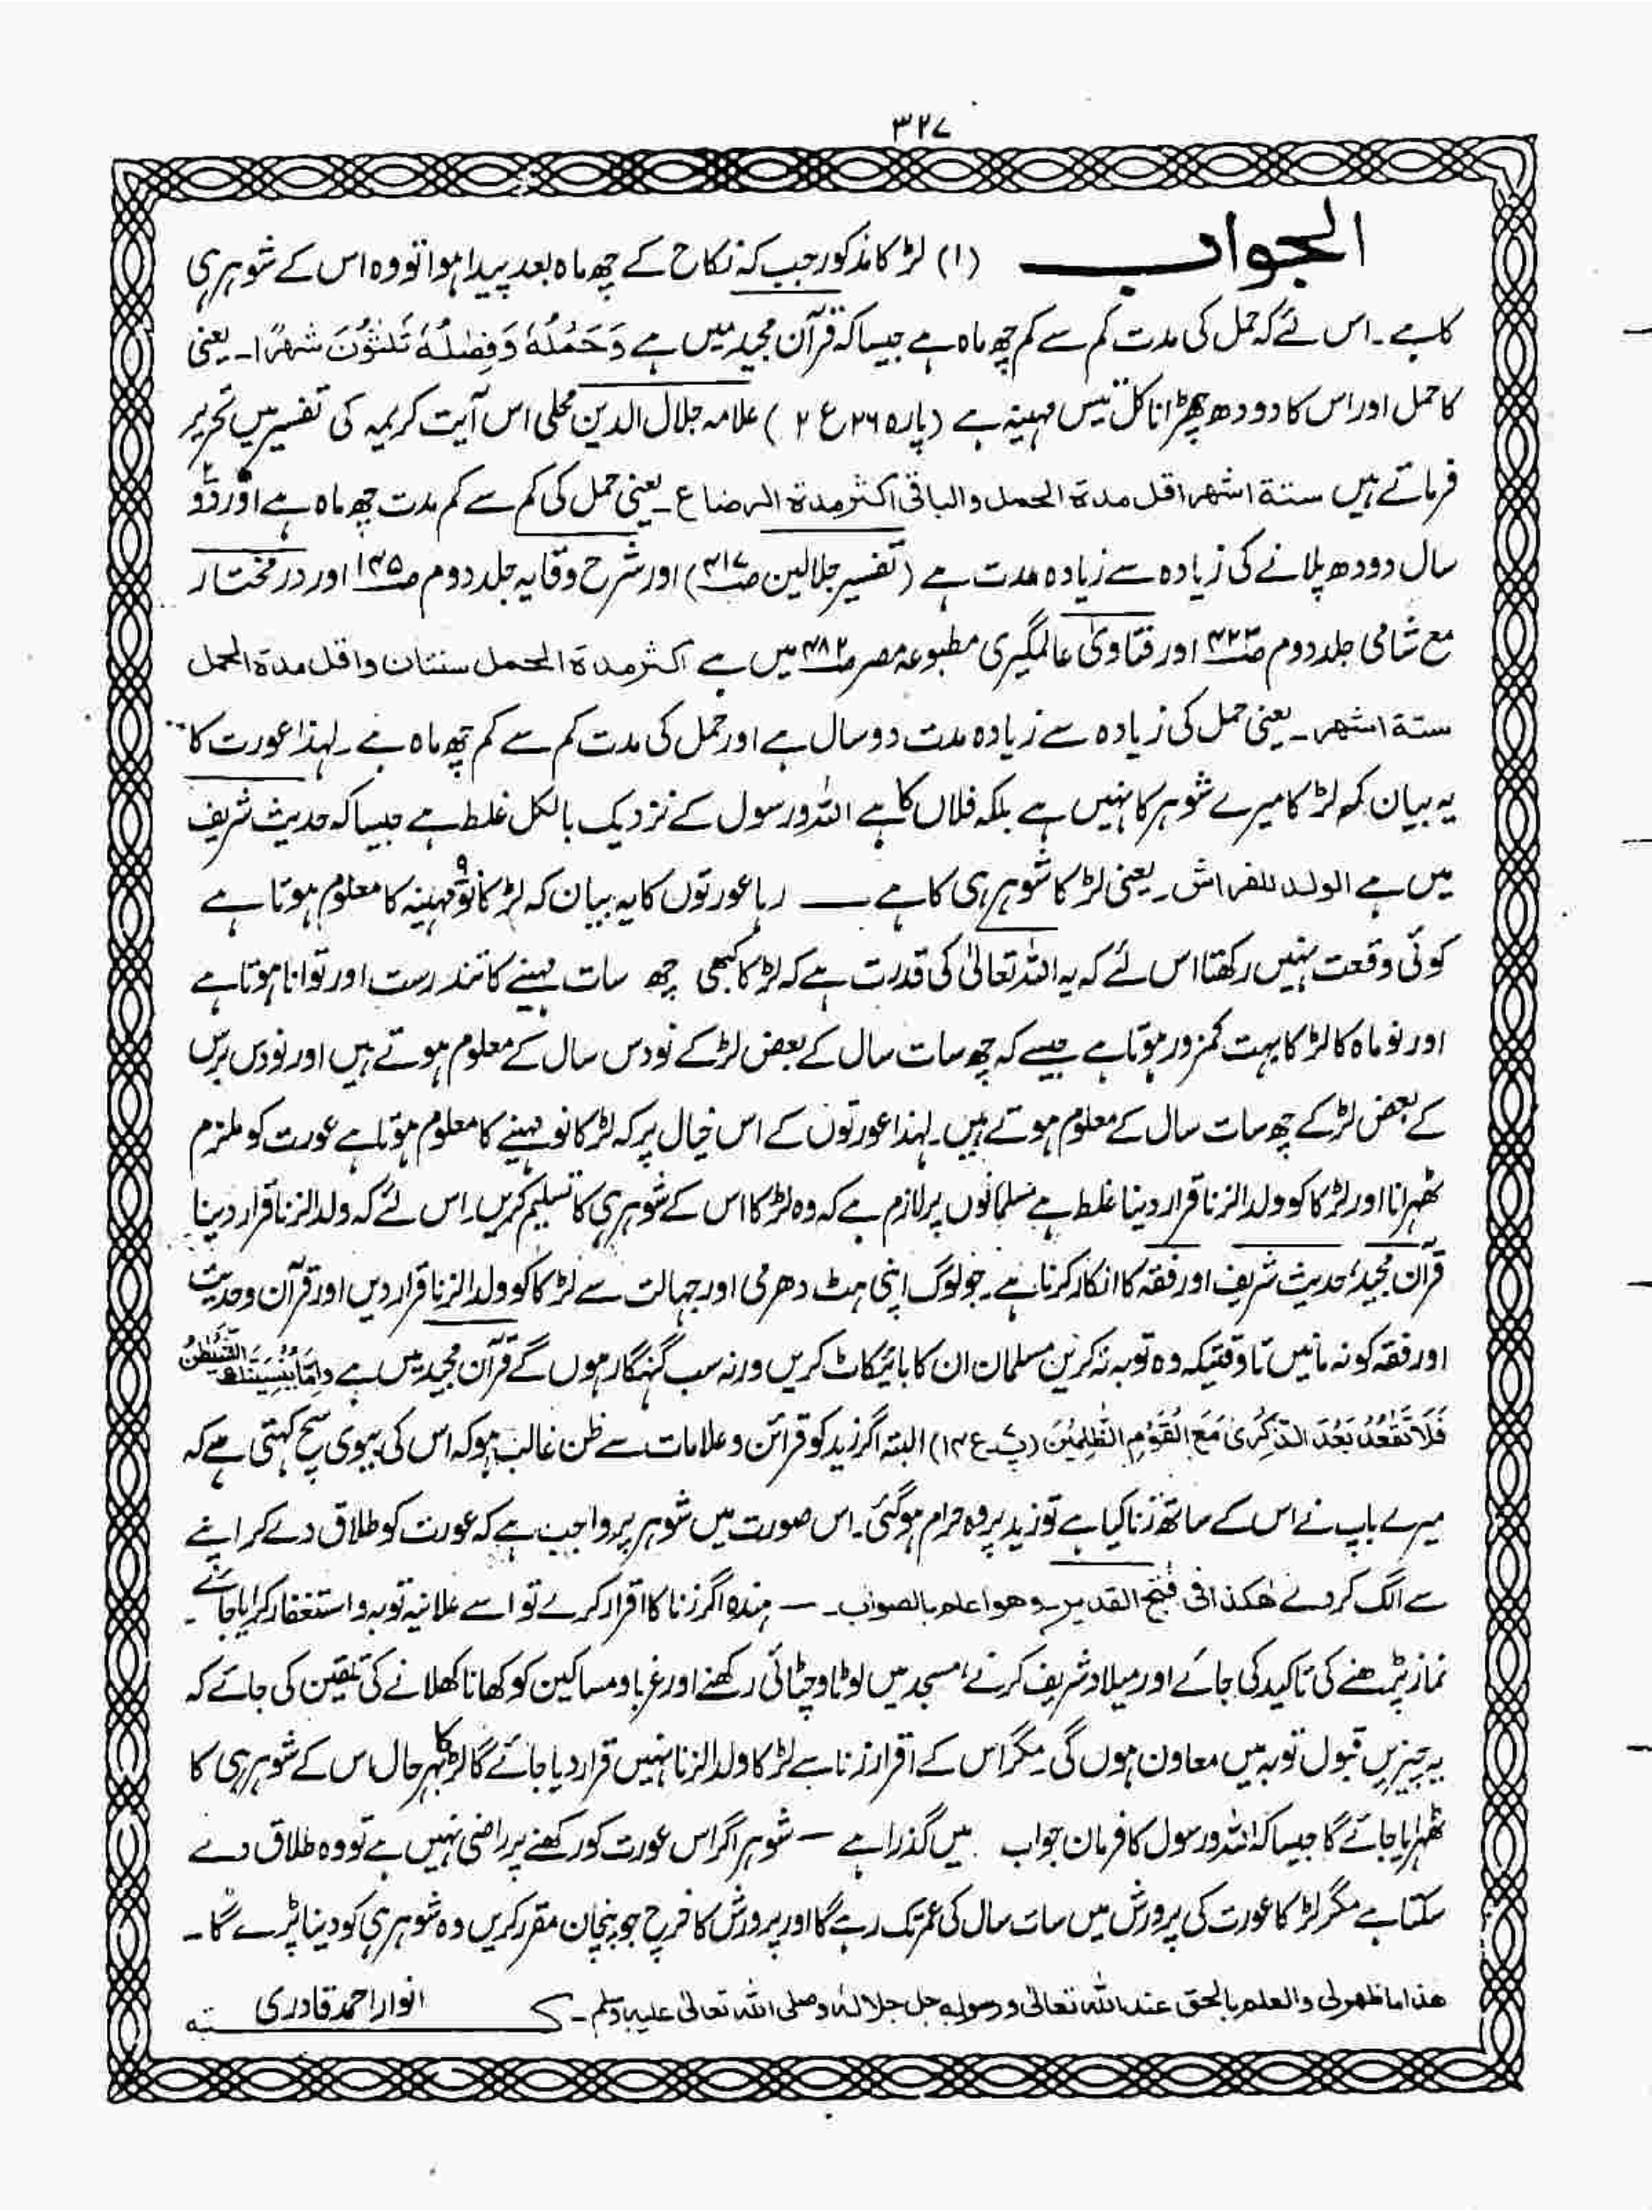 ۳۲۷
الجواب (۱) لڑکا مذکور جب کہ نکاح کے چھ ماہ بعد پیدا ہوا تو وہ اس کے شوہر ہی
کا ہے ۔ اس لئے کہ حمل کی مدت کم سے کم چھ ماہ ہے جیسا کہ قرآن مجید میں ہے وَحَمْلُهٗ وَفِصٰلُهٗ ثَلٰثُوْنَ شَهْرًا ۔ یعنی
کا حمل اور اس کا دودھ چھڑانا کل تیس مہینہ ہے (پارہ ۲۶ ع ۲) علامہ جلال الدین محلی اس آیت کریمہ کی تفسیر میں تحریر
فرماتے ہیں ستة اشهر اقل مدة الحمل والباقی اکثر مدة الرضاع ۔ یعنی حمل کی کم سے کم مدت چھ ماہ ہے اور دو
سال دودھ پلانے کی زیادہ سے زیادہ مدت ہے (تفسیر جلالین ص۴۱۷) اور شرح وقایہ جلد دوم ص۱۴۵ اور درمختار
مع شامی جلد دوم اور فتاویٰ عالمگیری مطبوعہ مصر ص۴۸۲ میں ہے اکثر مدة الحمل سنتان واقل مدة الحمل
ستة اشهر ۔ یعنی حمل کی زیادہ سے زیادہ مدت دو سال ہے اور حمل کی مدت کم سے کم چھ ماہ ہے ۔ لہذا عورت کا
یہ بیان کہ لڑکا میرے شوہر کا نہیں ہے بلکہ فلاں کا ہے اللہ و رسول کے نزدیک بالکل غلط ہے جیسا کہ حدیث شریف
میں ہے الولد للفراش ۔ یعنی لڑکا شوہر ہی کا ہے ــــ رہا عورتوں کا یہ بیان کہ لڑکا نو ۹ مہینہ کا معلوم ہوتا ہے
کوئی وقعت نہیں رکھتا اس لئے کہ یہ اللہ تعالیٰ کی قدرت ہے کہ لڑکا کبھی چھ سات مہینے کا تندرست اور توانا ہوتا ہے
اور نو ماہ کا لڑکا بہت کمزور ہوتا ہے جیسے کہ چھ سات سال کے بعض لڑکے نو دس سال کے معلوم ہوتے ہیں اور نو دس برس
کے بعض لڑکے چھ سات سال کے معلوم ہوتے ہیں ۔ لہذا عورتوں کے اس خیال پر کہ لڑکا نو مہینے کا معلوم ہوتا ہے عورت کو ملزم
ٹھہرانا اور لڑکا کو ولد الزنا قرار دینا غلط ہے مسلمانوں پر لازم ہے کہ وہ لڑکا اس کے شوہر ہی کا تسلیم کریں۔ اس لئے کہ ولد الزنا قرار دینا
قرآن مجید، حدیث شریف اور فقہ کا انکار کرنا ہے ۔ جو لوگ اپنی ہٹ دھرمی اور جہالت سے لڑکا کو ولد الزنا قرار دیں اور قرآن و حدیث
اور فقہ کو نہ مانیں تا وقتیکہ وہ توبہ نہ کریں مسلمان ان کا بائیکاٹ کریں ورنہ سب گنہگار ہوں گے قرآن مجید میں ہے وَاِمَّا یُنْسِیَنَّكَ الشَّیْطٰنُ
فَلَا تَقْعُدْ بَعْدَ الذِّكْرٰى مَعَ الْقَوْمِ الظّٰلِمِیْنَ (پ ع ۱۴) البتہ اگر زید کو قرائن و علامات سے ظن غالب ہو کہ اس کی بیوی سچ کہتی ہے کہ
میرے باپ نے اس کے ساتھ زنا کیا ہے تو زید پر وہ حرام ہو گئی ۔ اس صورت میں شوہر پر واجب ہے کہ عورت کو طلاق دے کر اپنے
سے الگ کر دے ھکذا فی فتح القدیر۔ وھو اعلم بالصواب۔ — ہندہ اگر زنا کا اقرار کرے تو اسے علانیہ توبہ و استغفار کرایا جائے ۔
نماز پڑھنے کی تاکید کی جائے اور میلاد شریف کرنے، مسجد میں لوٹا و چٹائی رکھنے اور غربا و مساکین کو کھانا کھلانے کی تلقین کی جائے کہ
یہ چیزیں قبول توبہ میں معاون ہوں گی ۔ مگر اس کے اقرار زنا سے لڑکا ولد الزنا نہیں قرار دیا جائے گا لڑکا بہر حال اس کے شوہر ہی کا
ٹھہرایا جائے گا جیسا کہ اللہ و رسول کا فرمان جواب میں گذرا ہے — شوہر اگر اس عورت کو رکھنے پر راضی نہیں ہے تو وہ طلاق دے
سکتا ہے مگر لڑکا عورت کی پرورش میں سات سال کی عمر تک رہے گا اور پرورش کا خرچ جو پنچان مقرر کریں وہ شوہر ہی کو دینا پڑے گا ۔
ھذا ما ظھر لی والعلم بالحق عند اللہ تعالیٰ و رسولہ جل جلالہٗ و صلی اللہ تعالیٰ علیہ وسلم ۔ کتبہ انوار احمد قادری